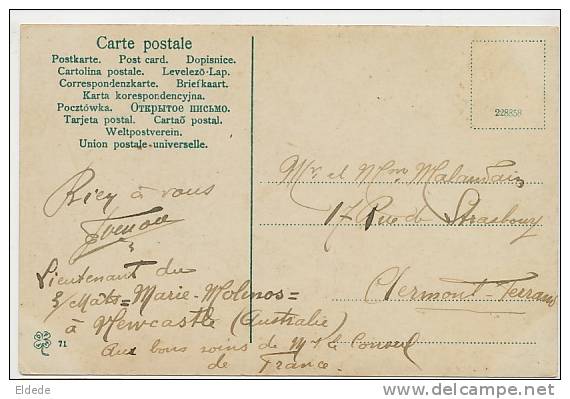 Carte postale
Postkarte. Post card. Dopisnice.
Cartolina postale. Levelező-Lap.
Correspondenzkarte. Briefkaart.
Karta korespondencyjna.
Pocztówka. Открытое письмо.
Tarjeta postal. Cartaõ postal.
Weltpostverein.
Union postale universelle.
228858
Mr et Mme Malandain
17 Rue de Strasbourg
Clermont-Ferrand
Bien à vous
Lieutenant du
3/Mats=Marie-Molinos=
à Newcastle (Australie)
Aux bons soins de Mr le Consul
de France
71
Eldede
http://www.delcampe.net